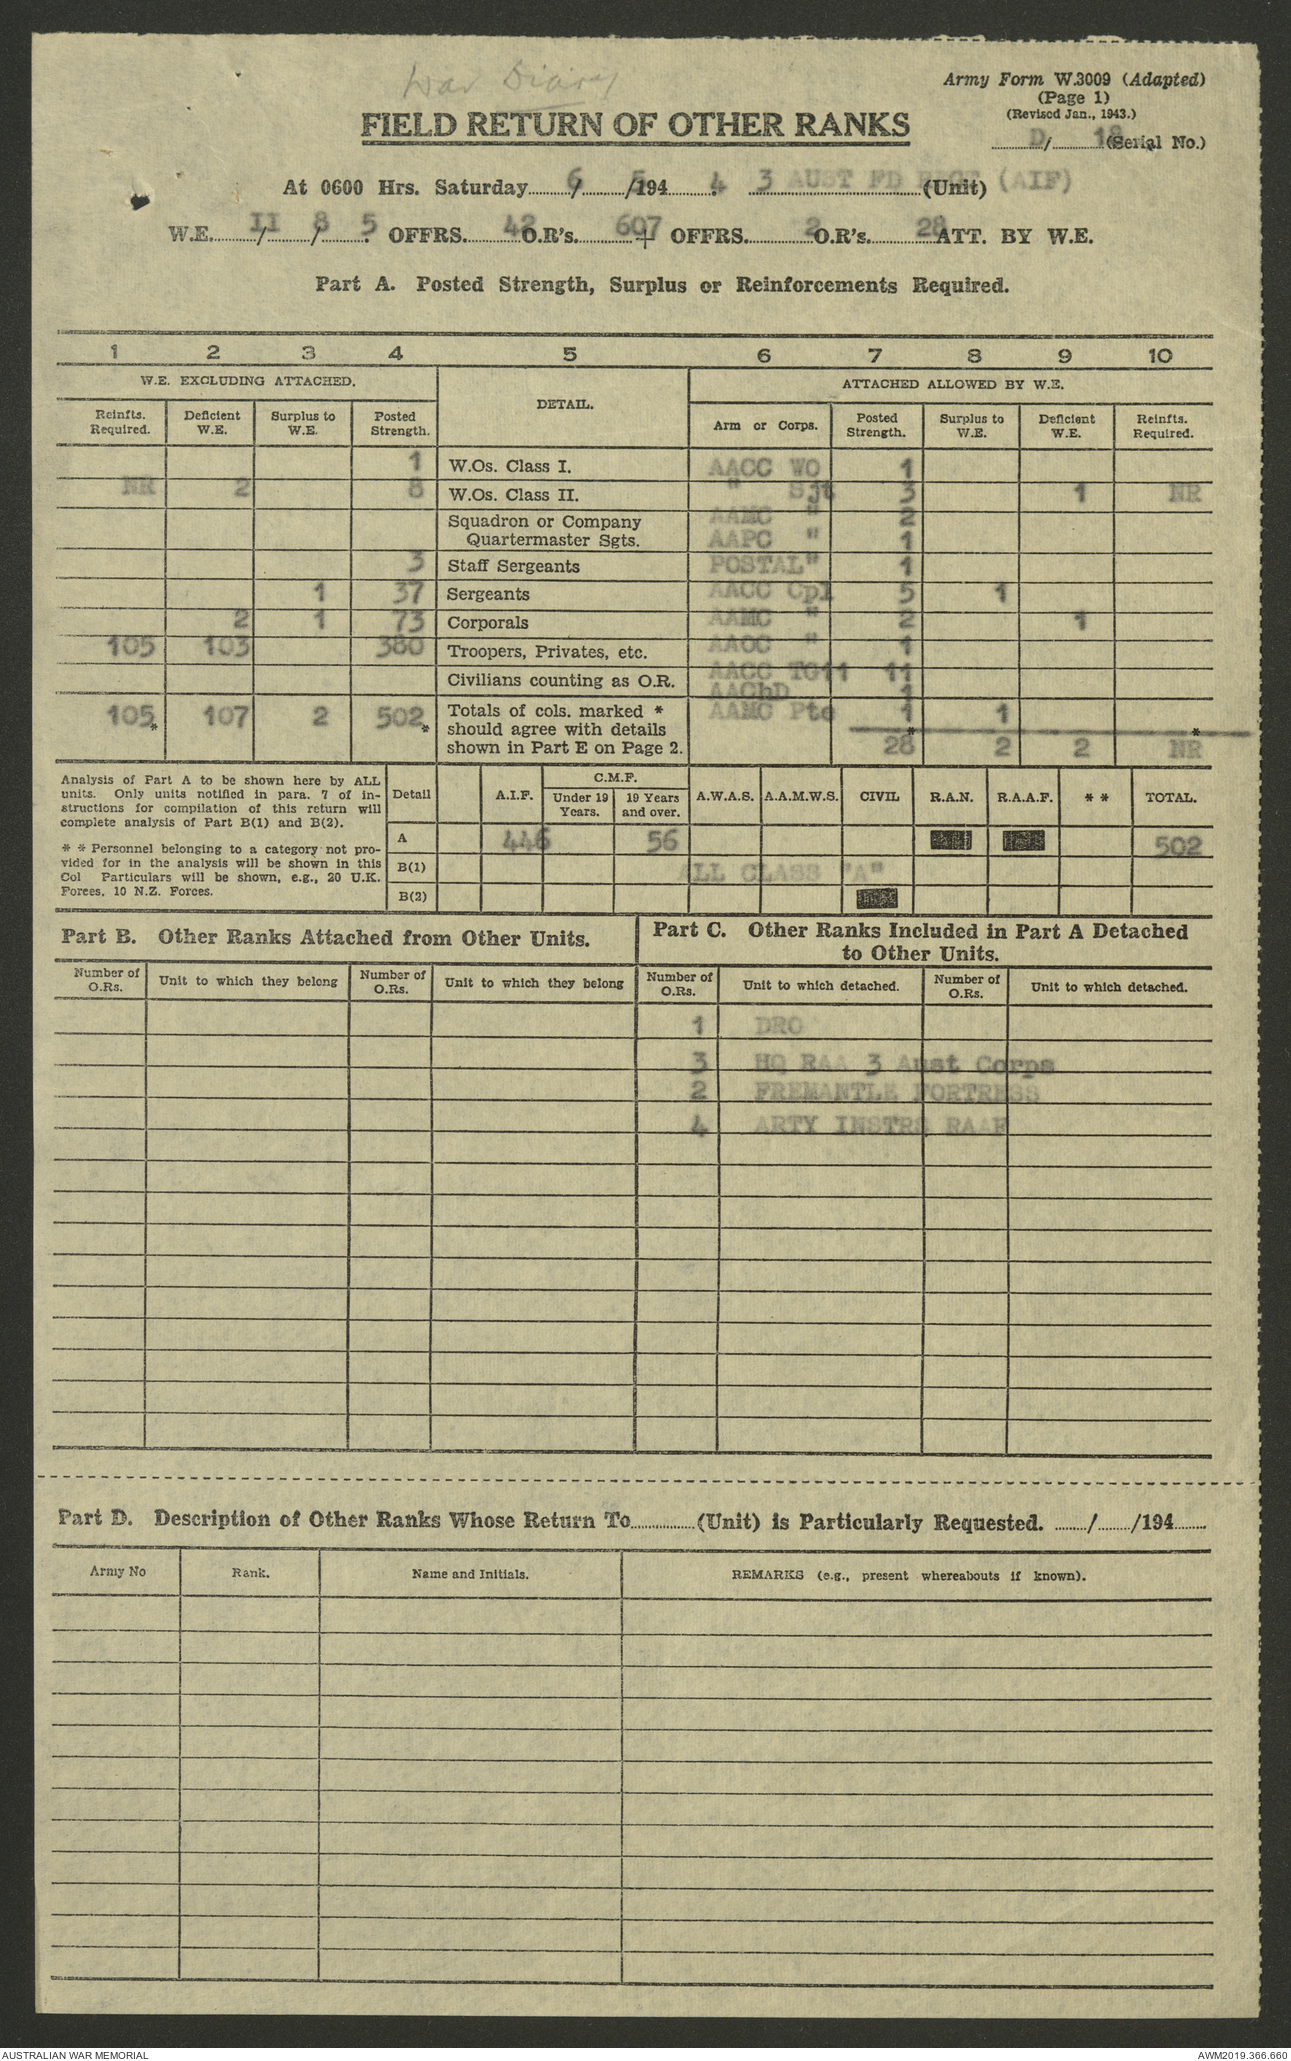 War Diary
Army Form W.3009 (Adapted)
(Page 1)
(Revised Jan., 1943.)
FIELD RETURN OF OTHER RANKS
D/ 18 (Serial No.)
At 0600 Hrs. Saturday 6/ 5 /194 4 3 AUST FD REGT (AIF) (Unit)
W.E. II/ 8/ 5. OFFRS. 42 O.R's. 607 + OFFRS. 2 O.R's. 28 ATT. BY W.E.
Part A. Posted Strength, Surplus or Reinforcements Required.
1 2 3 4 5 6 7 8 9 10
W.E. EXCLUDING ATTACHED. DETAIL. ATTACHED ALLOWED BY W.E.
Reinfts. Required. Deficient W.E. Surplus to W.E. Posted Strength. Arm or Corps. Posted Strength. Surplus to W.E. Deficient W.E. Reinfts. Required.
1 W.Os. Class I. AACC WO 1
NR 2 8 W.Os. Class II. " Sjt 3 1 NR
Squadron or Company AAMC " 2
Quartermaster Sgts. AAPC " 1
3 Staff Sergeants POSTAL " 1
1 37 Sergeants AACC Cpl 5 1
2 1 73 Corporals AAMC " 2 1
105 103 380 Troopers, Privates, etc. AAOC " 1
Civilians counting as O.R. AACC TG11 11
AAChD 1
105* 107 2 502* Totals of cols. marked * AAMC Pte 1 1
should agree with details * *
shown in Part E on Page 2. 28 2 2 NR
Analysis of Part A to be shown here by ALL
units. Only units notified in para. 7 of in-
structions for compilation of this return will
complete analysis of Part B(1) and B(2).
* * Personnel belonging to a category not pro-
vided for in the analysis will be shown in this
Col Particulars will be shown, e.g., 20 U.K.
Forces, 10 N.Z. Forces.
Detail A.I.F. C.M.F. A.W.A.S. A.A.M.W.S. CIVIL R.A.N. R.A.A.F. * * TOTAL.
Under 19 Years. 19 Years and over.
A 446 56 502
B(1) ALL CLASS "A"
B(2)
Part B. Other Ranks Attached from Other Units.
Number of O.Rs. Unit to which they belong Number of O.Rs. Unit to which they belong
Part C. Other Ranks Included in Part A Detached
to Other Units.
Number of O.Rs. Unit to which detached. Number of O.Rs. Unit to which detached.
1 DRO
3 HQ RAA 3 Aust Corps
2 FREMANTLE FORTRESS
4 ARTY INSTRS RAAF
Part D. Description of Other Ranks Whose Return To (Unit) is Particularly Requested. / /194
Army No Rank. Name and Initials. REMARKS (e.g., present whereabouts if known).
AUSTRALIAN WAR MEMORIAL AWM2019.366.660